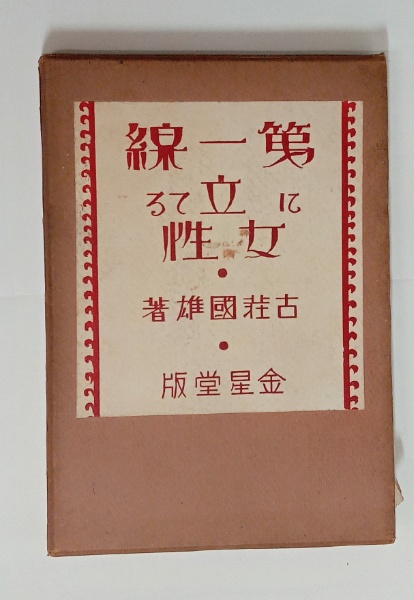 第一線
に立てる
女性
・
古荘國雄著
・
金星堂版